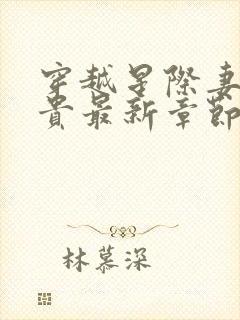 穿越星際妻
貴最新章節
林慕深